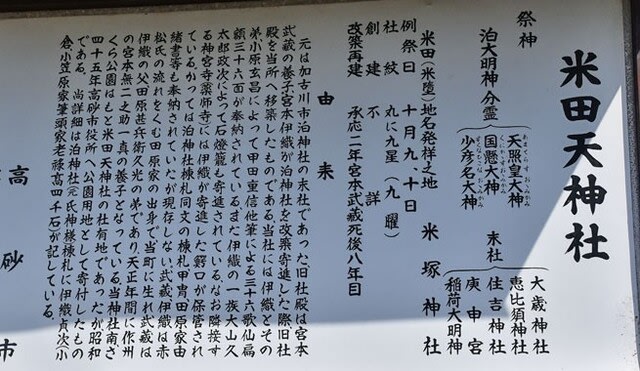 米田天神社
祭神
泊大明神分霊
天照皇大神
あまてらすおおみかみ
国懸大神
少彦名大神
末社
大歳神社
恵比須神社
住吉神社
庚申宮
稲荷大明神
米田（米堕）地名発祥之地 米塚神社
例祭日 十月九、十日
社紋 丸に九星（九曜）
創建 不詳
改築再建 承応二年宮本武蔵死後八年目
由来
元は加古川市泊神社の末社であった。旧社殿は宮本
武蔵の養子宮本伊織が泊神社を改築寄進した際旧社
殿を当所へ移築したものである。当社には伊織とその
弟小原玄昌によって甲田重信他筆による三十六歌仙扁
額三十六面が奉納されている。また伊織の一族大山久
太郎政次によって石燈籠も寄進されている。なお隣接す
る神宮寺（薬師寺）には伊織が寄進した鰐口が保管され
ているがかつては泊神社棟札同文の棟札、甲冑、田原家由
緒書等も奉納されていたが現存しない。武蔵、伊織は赤
松氏の流れをくむ田原家の出身で当町に生れ武蔵は
伊織の父田原甚兵衛久光の弟であり、天正年間に作州
の宮本無二之助一真の養子となっている。当神社南さ
くら公園はもと米田天神社の社有地であったが昭和
四十五年高砂市役所へ公園用地として寄付したもの
である。尚詳細は泊神社（元氏神様）棟札に伊織貞次（小
倉小笠原家筆頭家老禄高四千石）が記している。
高砂市